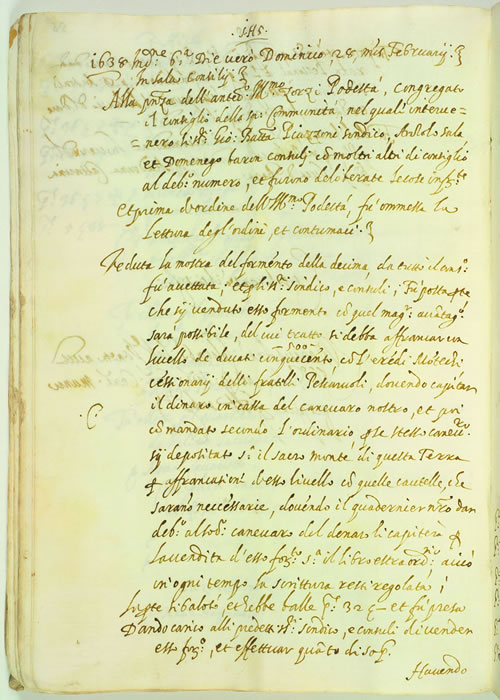 .IHS.
1638 Ind.ne 6.a Die verò Dominico, 28, mis Februarij.
In sala Consilij.
Alla pnza dell'antedo Ill.mo Zorzi Podestà, Congregato
il Consiglio della sp. Communità, nel quali interve=
=nero li ss.ri Gio: Batta sindico, Sala
et Domenego consuli cõ molti altri di consiglio
al deb.o numero, et furono deliberate le cose infs.te
Et prima d'ordine dell'Ill.mo Podestà, fu ommessa la
Lettura degl'ordini, et contumaci.
Veduta la mostra del formento della decima, da tutto il cons.o
fu accettata, et gli ss.ri sindico, e consuli, fu posta pte
che sij venduto esso formento cõ quel magr. avantag.o
sarà possibile, del cui tratto si debba affrancar un
500
livello de ducati cinquecento cõ l'eredi
cessionarij delli fratelli Pesaruoli, dovendo capitar
il dinaro in cassa del canevaro nostro, et poi
cõ mandato secondo l'ordinario p le stesso canev.ro
sij depositato s.a il sacro monte di questa Terra
p affrancatione d'esso livello cõ quelle cautelle, che
sarano neccessarie, dovendo il quadernier nro dar
deb.o al sod.o canevaro del denaro li capiterà p
la vendita d'esso for.to s.a il libro estraord.rio acciò
in ogni tempo la scrittura resti regolata;
La pte si balotò, et hebbe balle p.o 32 c.– et fu presa
Dando carico alli predetti ss.ri sindico, e consuli di vender
esso for.to, et effettuar quãto di sop.a
Havendo